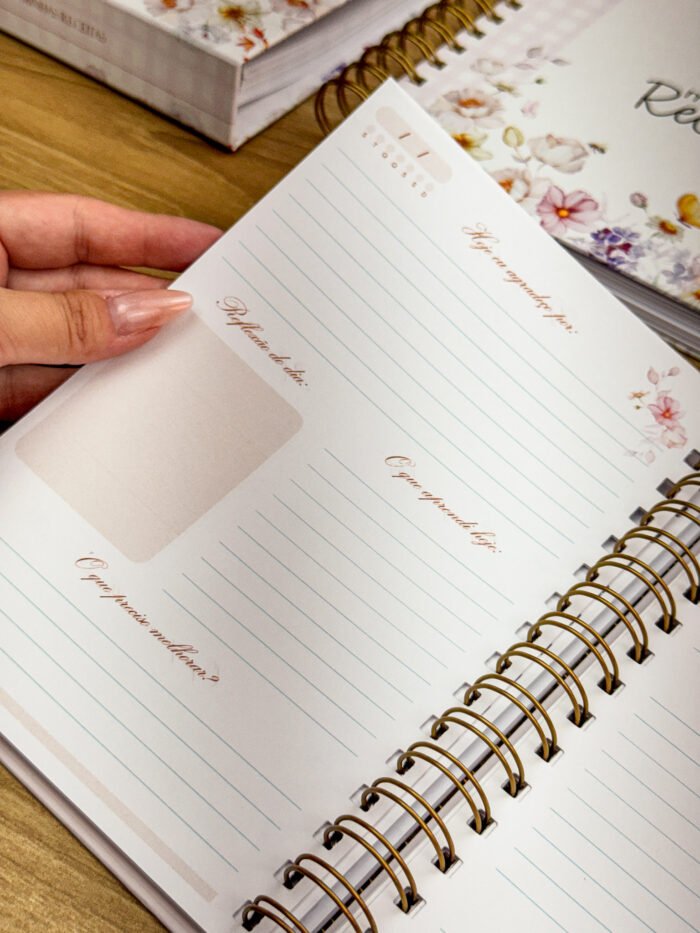 MINHAS RECEITAS
Re
/ /
S T Q Q S S D
Hoje eu agradeço por:
Reflexão do dia:
O que aprendi hoje:
O que preciso melhorar?